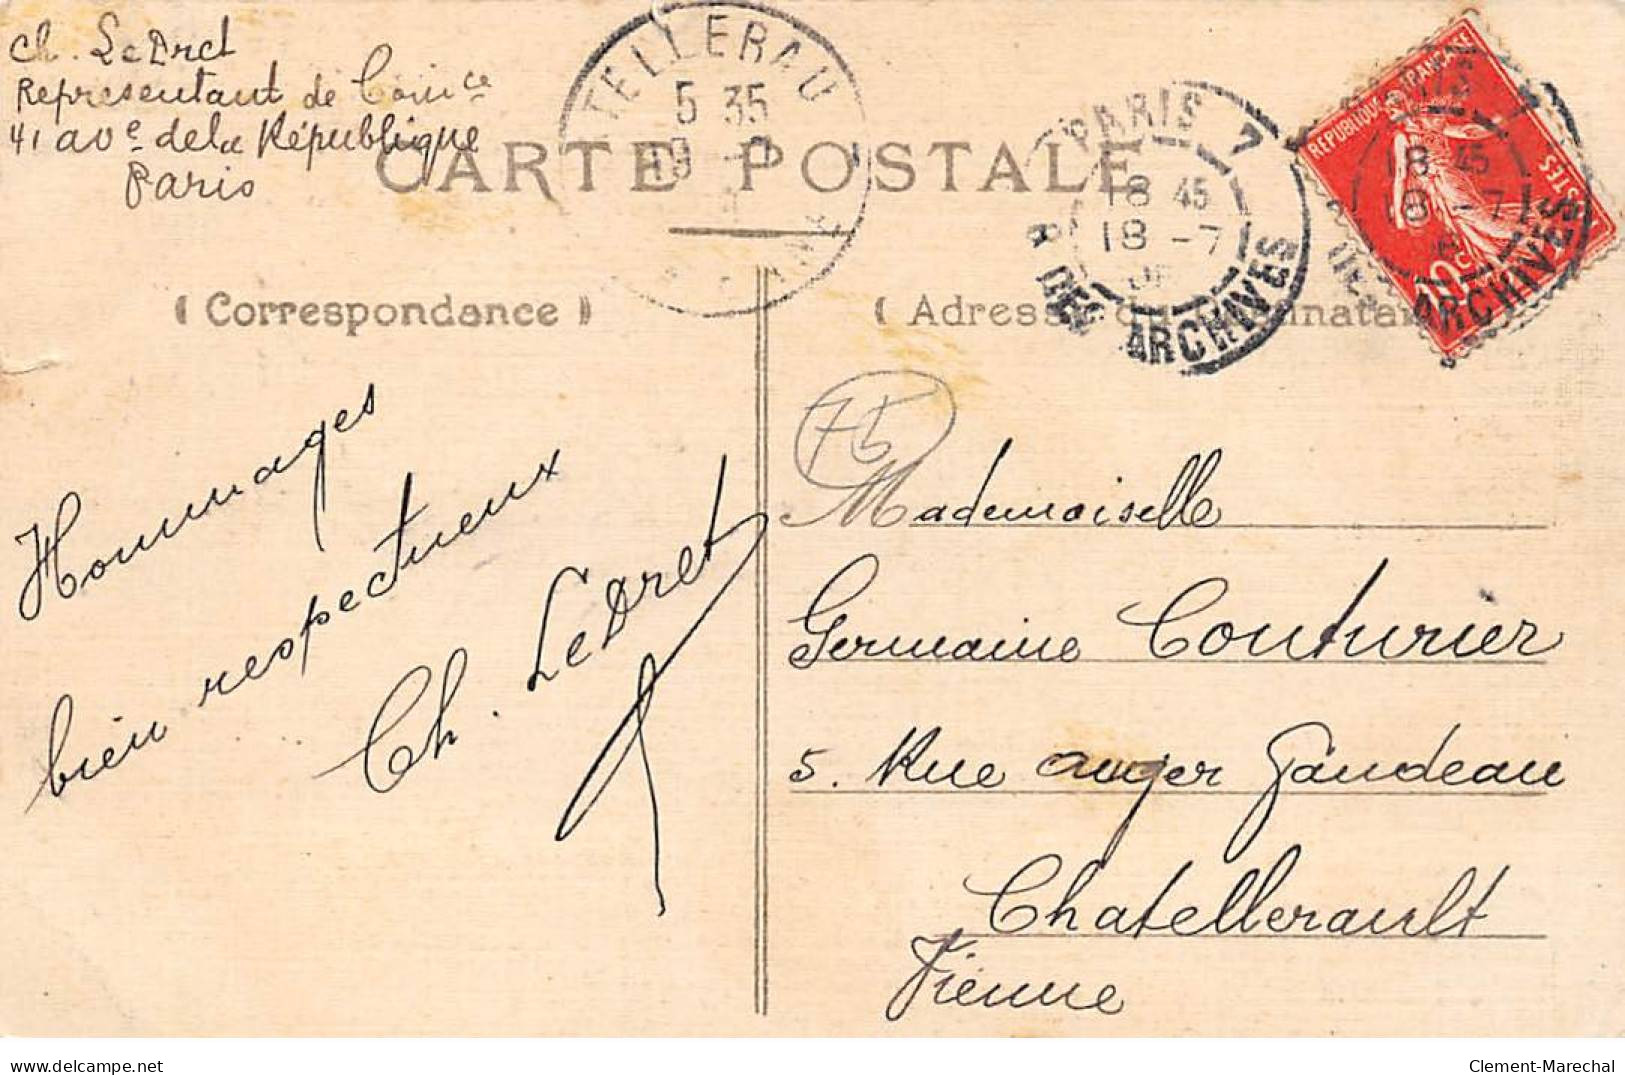 Ch. LeDret
Representant de Com^ce
41 av^e de la République
Paris
CARTE POSTALE
TELLERAU
5 35
19 -7
PARIS
18 45
18 -7
R DES ARCHIVES
REPUBLIQUE FRANÇAISE
POSTES
10c
18 45
18 -7
ARCHIVES
( Correspondance )
( Adresse du
75
Hommages
bien respectueux
Ch. LeDret
Mademoiselle
Germaine Couturier
5. Rue auger Gaudeau
Chatellerault
Vienne
www.delcampe.net
Clement-Marechal